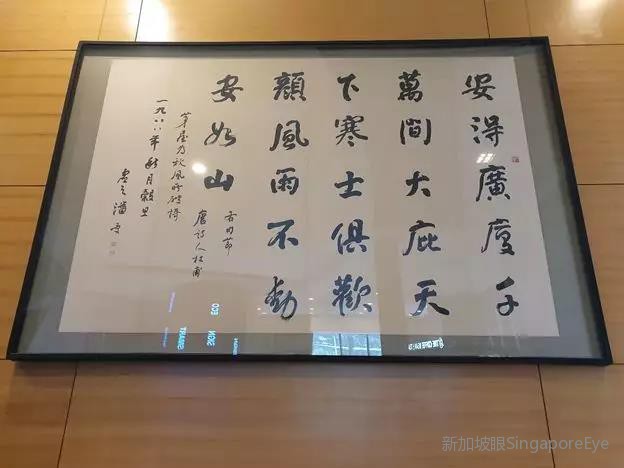 安得廣廈千
萬間大庇天
下寒士俱歡
顏風雨不動
安如山
右句節
唐詩人杜甫
茅屋為秋風所破
一九八八年秋月穀旦
虛之潘受
新加坡眼SingaporeEye